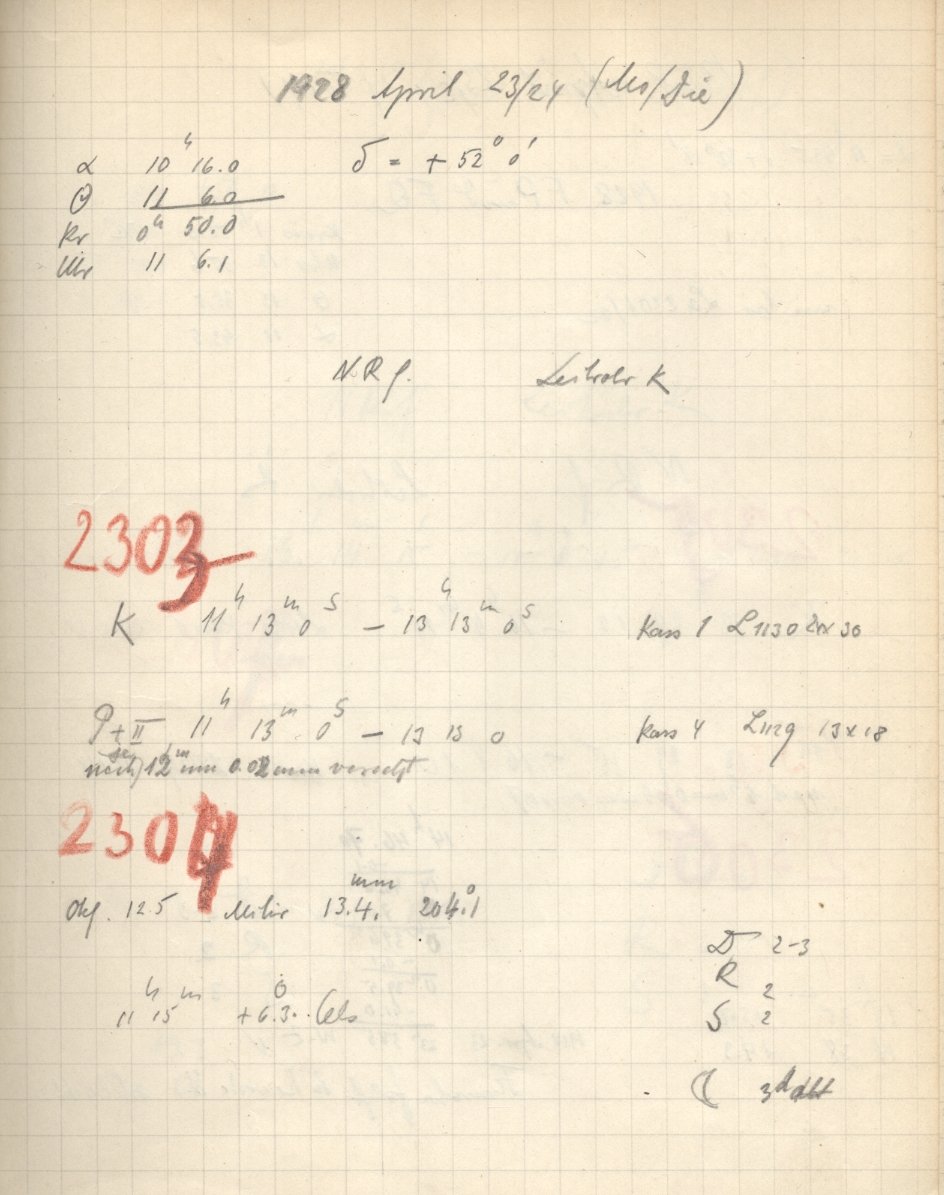 1928 April 23/24 (Mo/Die)
α 10ʰ 16.0 δ = + 52° 0'
Θ 11 6.0
Kr 0ʰ 50.0
Uhr 11 6.1
N.R.f. Leitrohr K
2303
K 11ʰ 13ᵐ 0ˢ – 13ʰ 13ᵐ 0ˢ Kass 1 L 1130 24x30
P + II 11ʰ 13ᵐ 0ˢ – 13 13 0 Kass 4 L 1129 13x18
nach je 12ᵐ um 0.02 mm versetzt.
2304
Okf. 12.5 13.4.ᵐᵐ 204.°1
D 2-3
R 2
11ʰ 15ᵐ +6.°3. Cels
S 2
☾ 3ᵈ alt